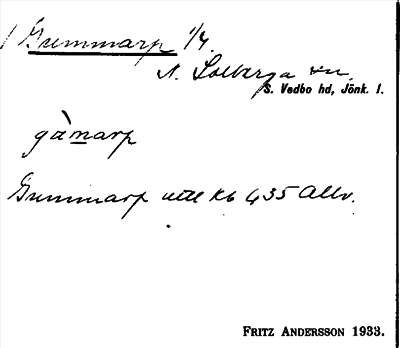 Gummarp 1/4.
N. Solberga sn.
S. Vedbo hd, Jönk. l.
gùmarp
Gummarp utt kb 435 Allv.
FRITZ ANDERSSON 1933.